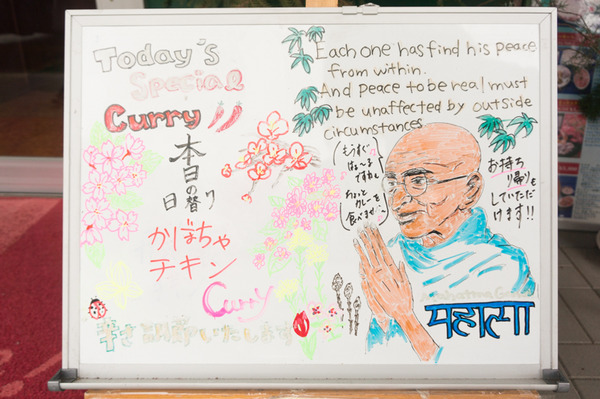 Today's
Special
Curry
本日の
日替り
かぼちゃ
チキン
Curry
辛さ調節いたします
Each one has find his peace
from within.
And peace to be real must
be unaffected by outside
circumstances
もうすぐ
ちょっと
カレーを
お持ち
帰りも
していただ
けます!!
महात्मा